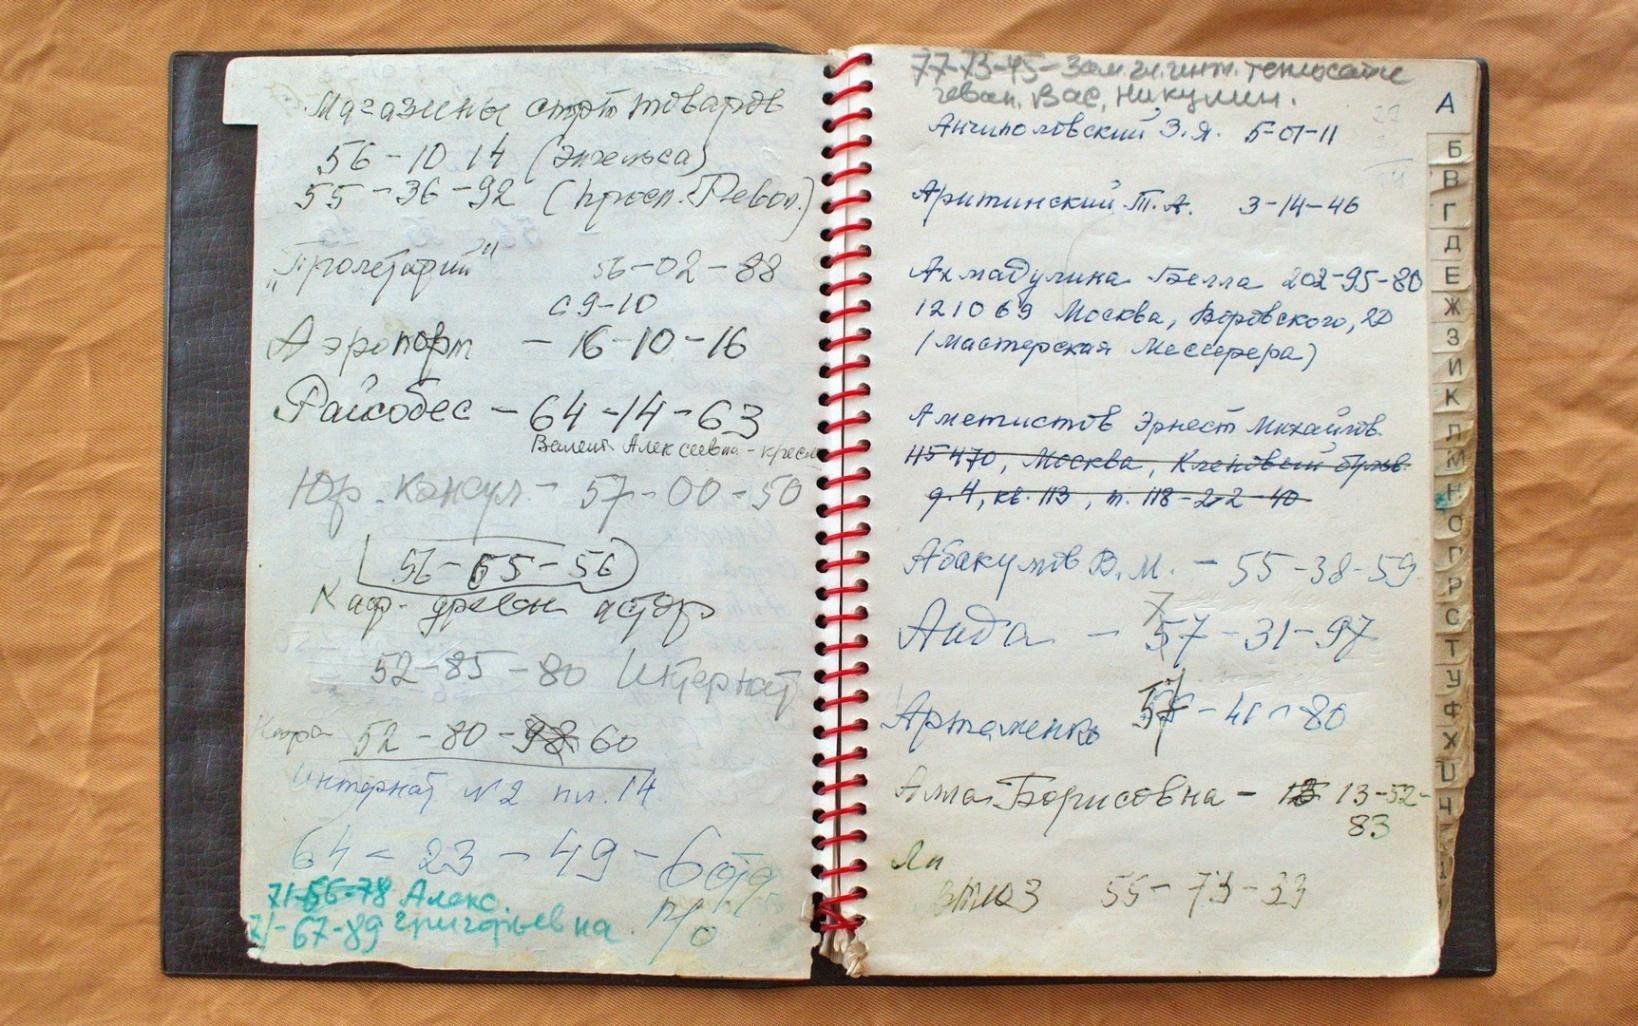 Магазины спорттоваров
56-10 14 (Энгельса)
55-36-92 (просп. Револ.)
"Пролетарий" 56-02-88
с 9-10
Аэропорт - 16-10-16
Райсобес - 64-14-63
Валент. Алексеевна - кресл
Юр. консул - 57-00-50
56-55-56
Каф. древн
52-85-80 Интернат
52-80-98 60
интернат №2 пл. 14
64-23-49 -
71-66-78 Алекс.
71-67-89 григорьевна
77-73-45 - Зам. гл. инж. теплосети
геван. Вас, Никулин.
Анчиполовский З.Я. 5-01-11
Аритинский Т.А. 3-14-46
Ахмадулина Белла 202-95-80
121069 Москва, Воровского, 20
(мастерская Мессерера)
Аметистов Эрнест Михайлов.
115470, Москва, Кленовый бульв.
д. 4, кв. 113, т. 118-22-40
Абакумов В.М. - 55-38-59
Аида - 57-31-97
7
Артаменко 57-41-80
Алла Борисовна - 13-52-
83
55-73-33
А
Б
В
Г
Д
Е
Ж
З
И
К
Л
М
Н
О
П
Р
С
Т
У
Ф
Х
Ц
Ч